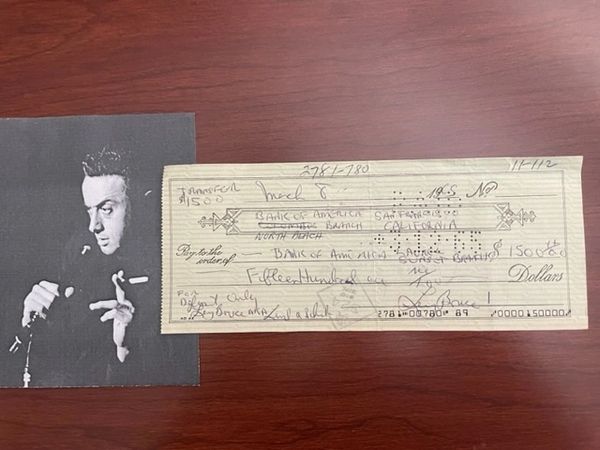 2781-780 11-112
TRANSFER
$1500
March 8 1965 No
BANK OF AMERICA SAN FRANCISCO
COLUMBUS BRANCH CALIFORNIA
NORTH BEACH
Pay to the
order of BANK OF AMERICA $1500
Fifteen Hundred Dollars
For
Deposit Only
Lenny Bruce AKA Lenny Bruce
2781 00780 89 0000150000